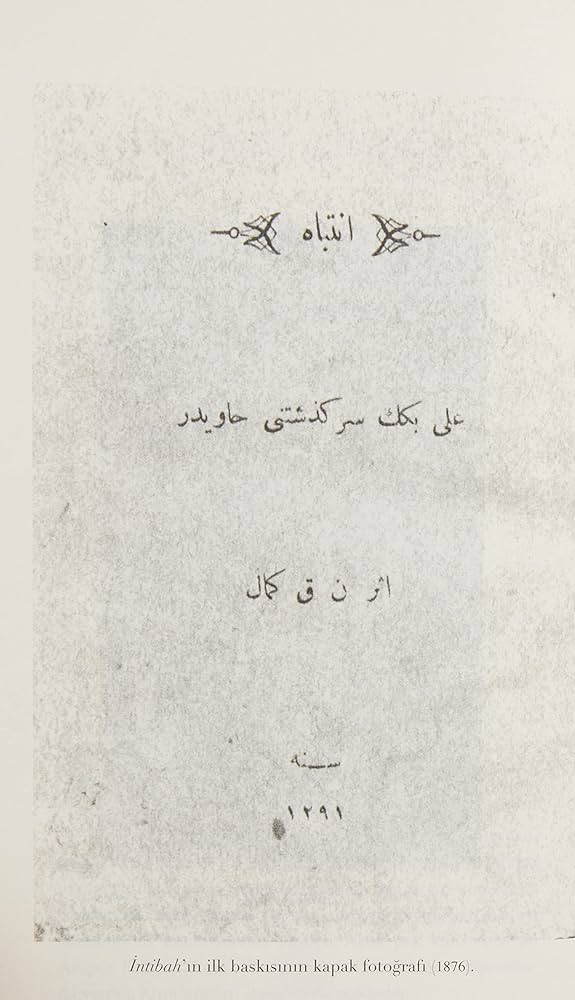 انتباه
علی بكك سركذشتنی حاویدر
اثر ن ق كمال
سنه
١٢٩١
İntibah'ın ilk baskısının kapak fotoğrafı (1876).